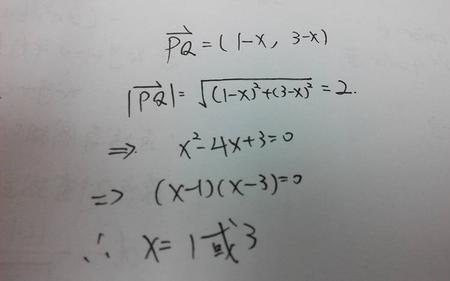 PQ⃗ = (1-x, 3-x)
|PQ⃗| = √((1-x)²+(3-x)²) = 2.
⇒ x²-4x+3=0
⇒ (x-1)(x-3)=0
∴ x=1或3